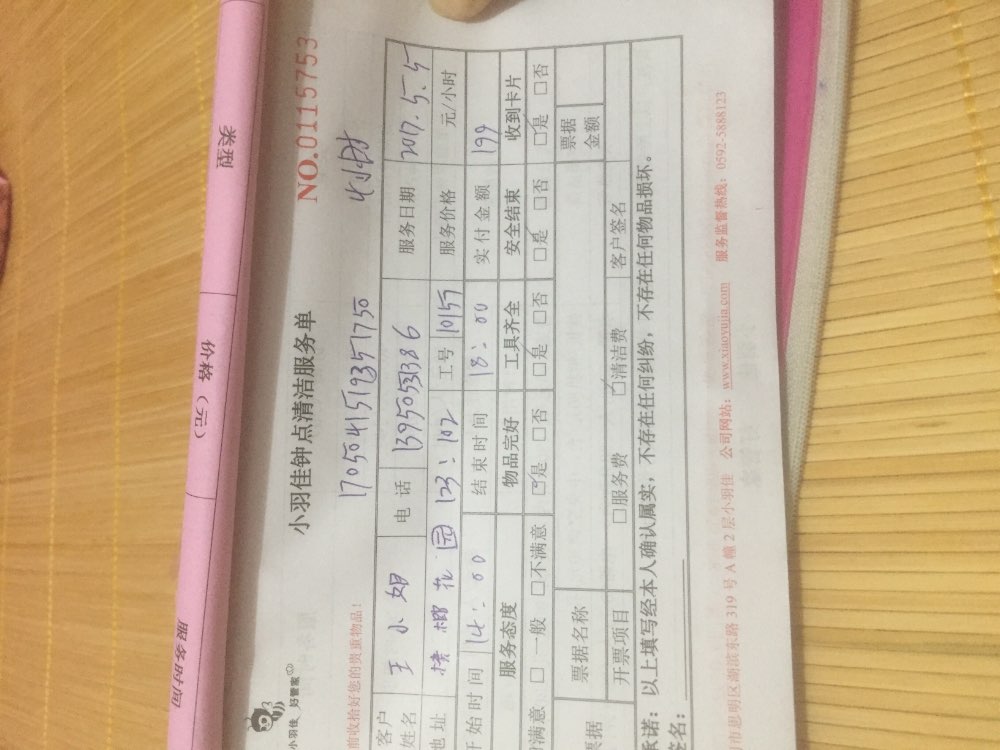 类型 价格（元） 服务时间
小羽佳 好管家
小羽佳钟点清洁服务单 NO.0115753
前收拾好您的贵重物品！ 170504151935 1750
客户姓名 王小姐 电话 13950531386 服务日期 2017.5.5
地址 槟榔花园123:102 工号 10157 服务价格 元/小时
开始时间 14:00 结束时间 18:00 实付金额 199
服务态度 物品完好 工具齐全 安全结束 收到卡片
满意 □一般 □不满意 □是 □否 □是 □否 □是 □否 □是 □否
票据 票据名称 票据金额
开票项目 □服务费 □清洁费 客户签名
承诺：以上填写经本人确认属实，不存在任何纠纷，不存在任何物品损坏。
签名：
市思明区湖滨东路 319 号 A 幢 2 层小羽佳 公司网站：www.xiaoyujia.com 服务监督热线：0592-5888123